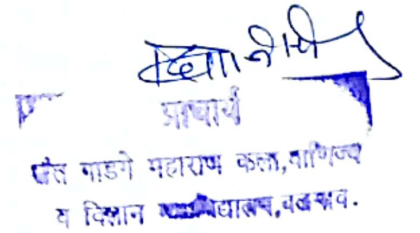 प्राचार्य
संत गाडगे महाराज कला,वाणिज्य
व विज्ञान महाविद्यालय,